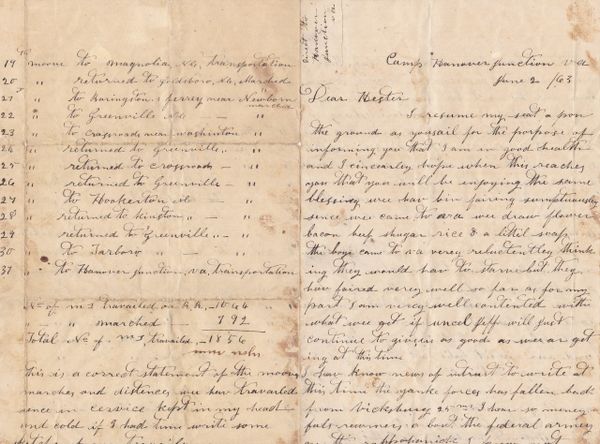 19th moove to Magnolia, N.C, transportation
20 " returned to Goldsboro, N.C, Marched
21st " to Barington, s ferry near Newborn marched
22 " to Greenville N.C — "
23 " to Crossroads near washinton "
24 " returned to Greenville — "
25 " returned to crossroads — "
26 " returned to Greenville — "
27 " to Hookerton N.C — "
28 " returned to Kingston " — "
29 " returned to Greenville " — "
30 " to Tarboro " — "
31 " to Hanover junction, va, transportation
No of ms travailed on R.R, — 1064 " "
" " " marched — 792
Total No of ms travailed, — 1856
This is a correct statement of the mooves
marches and distances wee hav travailed
sence in cervice kept in my head
and cold if I had time write some
Direct to
Hanover
junction
va
Camp Hanover junction va
June 2 /63
Dear Hester
I resume my seat a pon
the ground as you sail for the porpose of
informing you that I am in good health
and I cincearly hope when this reaches
you that you will be enjoying the same
blessing, wee hav bin faring sumptuously
sence wee came to va wee draw flower
bacon beef shugar rice & a littil soap
the boys came to va verey reluctentley think
ing they would hav to starve but they
hav faired verey well so far as for my
part I am verey well contented with
what wee get if uncel Jeff will just
continue to give us as good as wee ar get
ing at this time
I hav know news of intrust to write at
this time the yankee forces has fallen back
from vicksburg I hear so meney
fals rumers a bout the federal armey